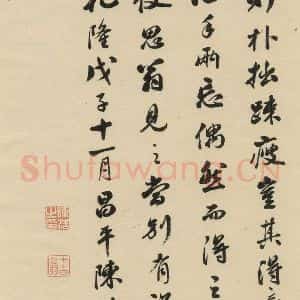 朴拙踈瘦豈其得
手兩忘偶然而得之
思翁見之當別有
乾隆戊子十一月昌平陳
Shufawang.CN